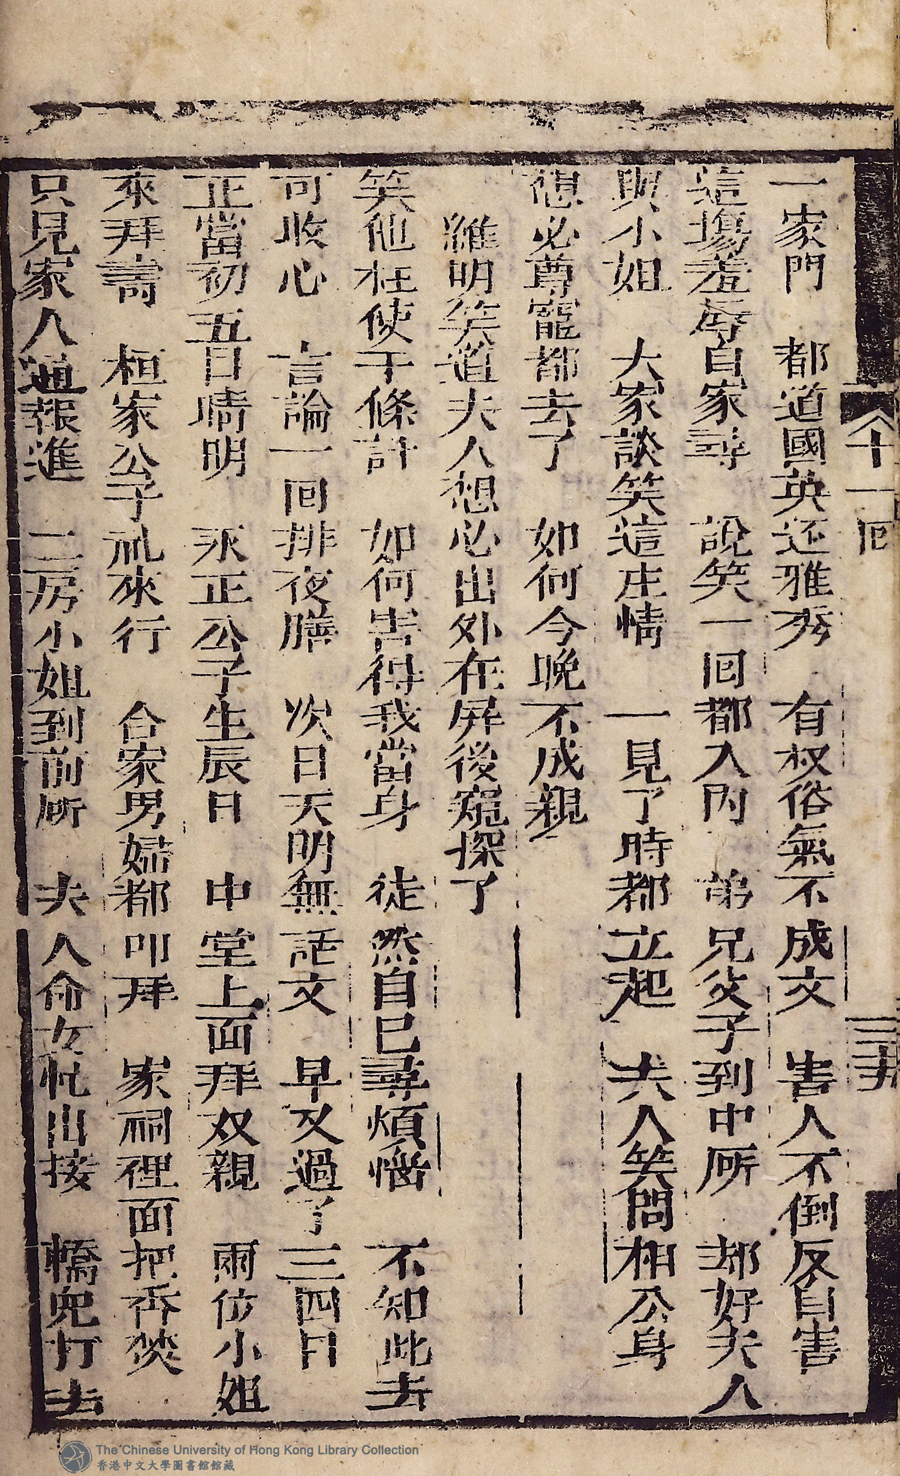 十一回
三十五
一家門　都道國英还雅秀　有权俗氣不成文　害人不倒反自害
這塲羞辱自家尋　說笑一回都入內　弟兄父子到中所　却好夫人
與小姐　大家談笑這庄情　一見了時都立起　夫人笑問相公身
想必尊寵都去了　如何今晚不成親
維明笑道夫人想必出外在屏後窺探了
笑他枉使千條計　如何害得我當身　徒然自巳尋煩惱　不知此去
可收心　言論一回排夜膳　次日天明無話文　早又過了三四日
正當初五日晴明　永正公子生辰日　中堂上面拜双親　兩位小姐
來拜壽　桓家公子礼來行　合家男婦都叩拜　家祠裡面把香焚
只見家人通報進　二房小姐到前所　夫人命女忙出接　轎兜打去
The Chinese University of Hong Kong Library Collection
香港中文大學圖書館館藏